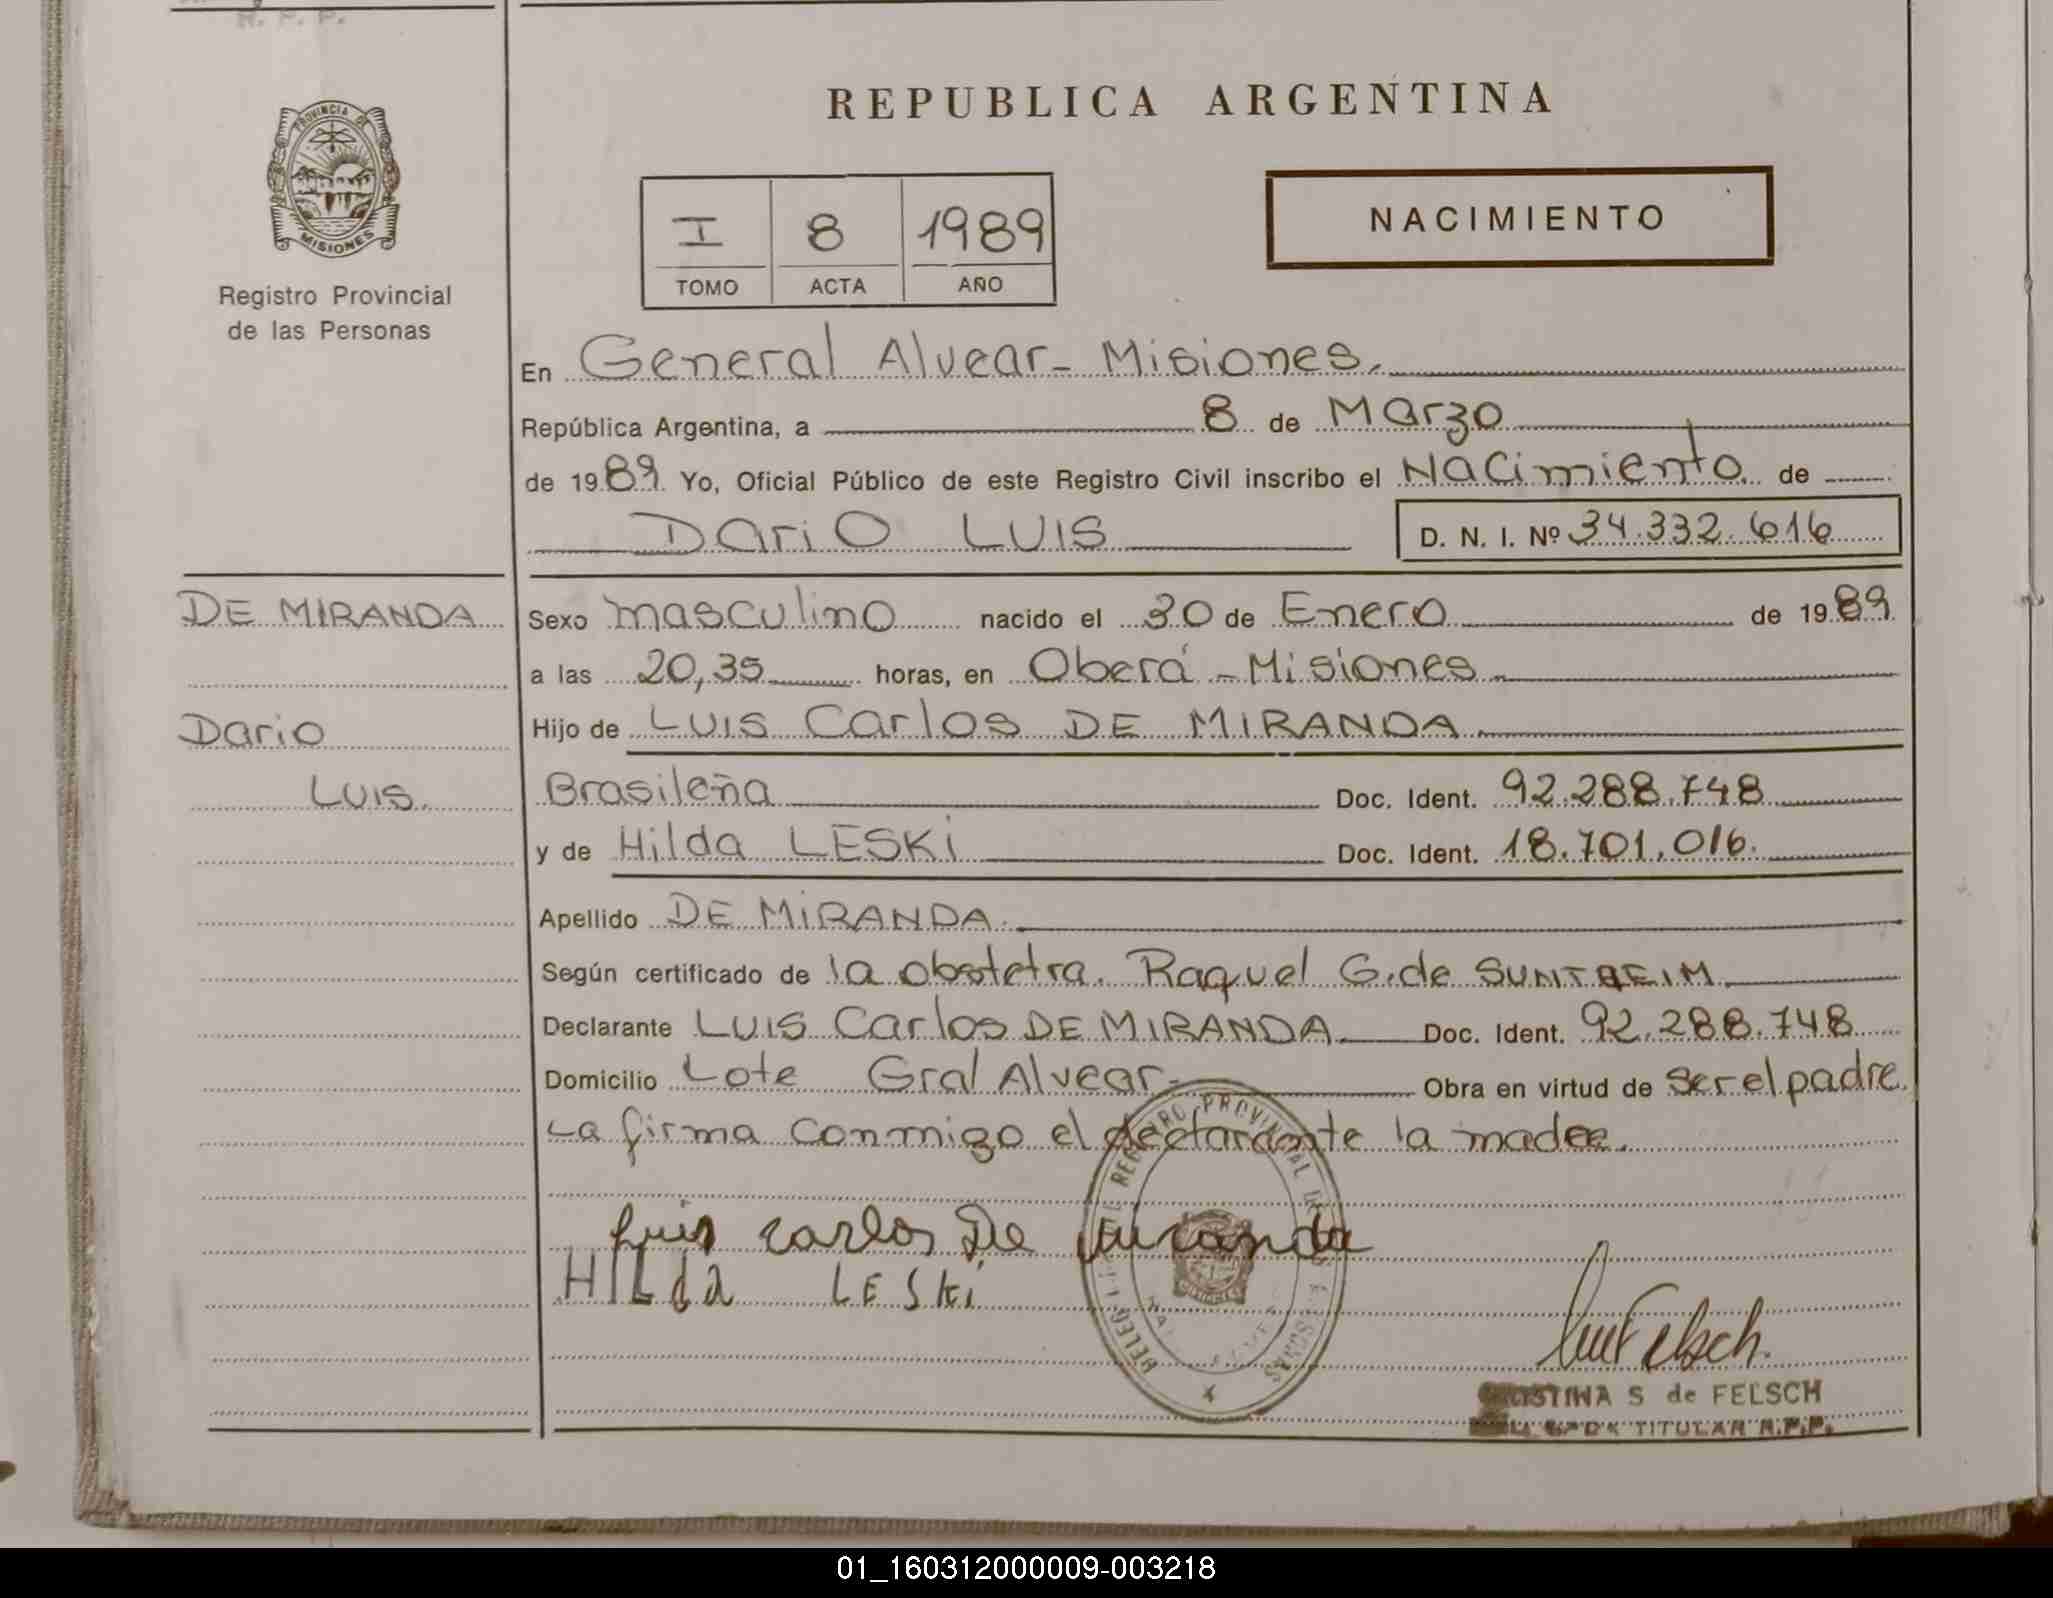 PROVINCIA DE
MISIONES
Registro Provincial
de las Personas
REPUBLICA ARGENTINA
I 8 1989
TOMO ACTA AÑO
NACIMIENTO
En General Alvear - Misiones.
República Argentina, a 8 de Marzo
de 1989 Yo, Oficial Público de este Registro Civil inscribo el Nacimiento de
Dario LUIS D. N. I. Nº 34.332.616
DE MIRANDA
Dario
LUIS.
Sexo masculino nacido el 30 de Enero de 1989
a las 20,35 horas, en Oberá - Misiones
Hijo de LUIS Carlos DE MIRANDA
Brasileña Doc. Ident. 92.288.748
y de Hilda LESKi Doc. Ident. 18.701.016.
Apellido DE MiRANDA.
Según certificado de la obstetra. Raquel G. de
Declarante LUIS Carlos DE MIRANDA Doc. Ident. 92.288.748
Domicilio Lote Gral Alvear Obra en virtud de ser el padre.
La firma conmigo el la madre.
REGISTRO PROVINCIAL DE
Luis Carlos De Miranda
HILda LESKi
Felsch.
S de FELSCH
TITULAR R.P.P.
01_160312000009-003218